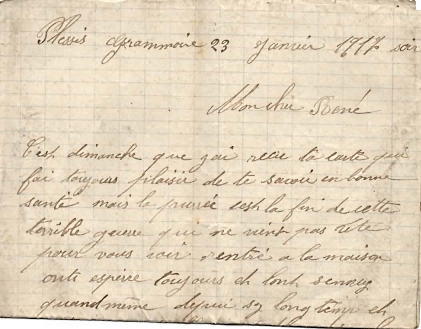 Plessis Grammoire 23 Janvier 1917 soir
Mon cher René
C'est dimanche que j'ai recu ta carte qui
fai toujours plaisir de te savoir en bonne
santé mais le c'est la fin de cette
terrible guere qui ne vient pas vite
pour vous voir rentré a la maison
ont espère toujours et lont sennuy
quand même depuis sy longtemp et